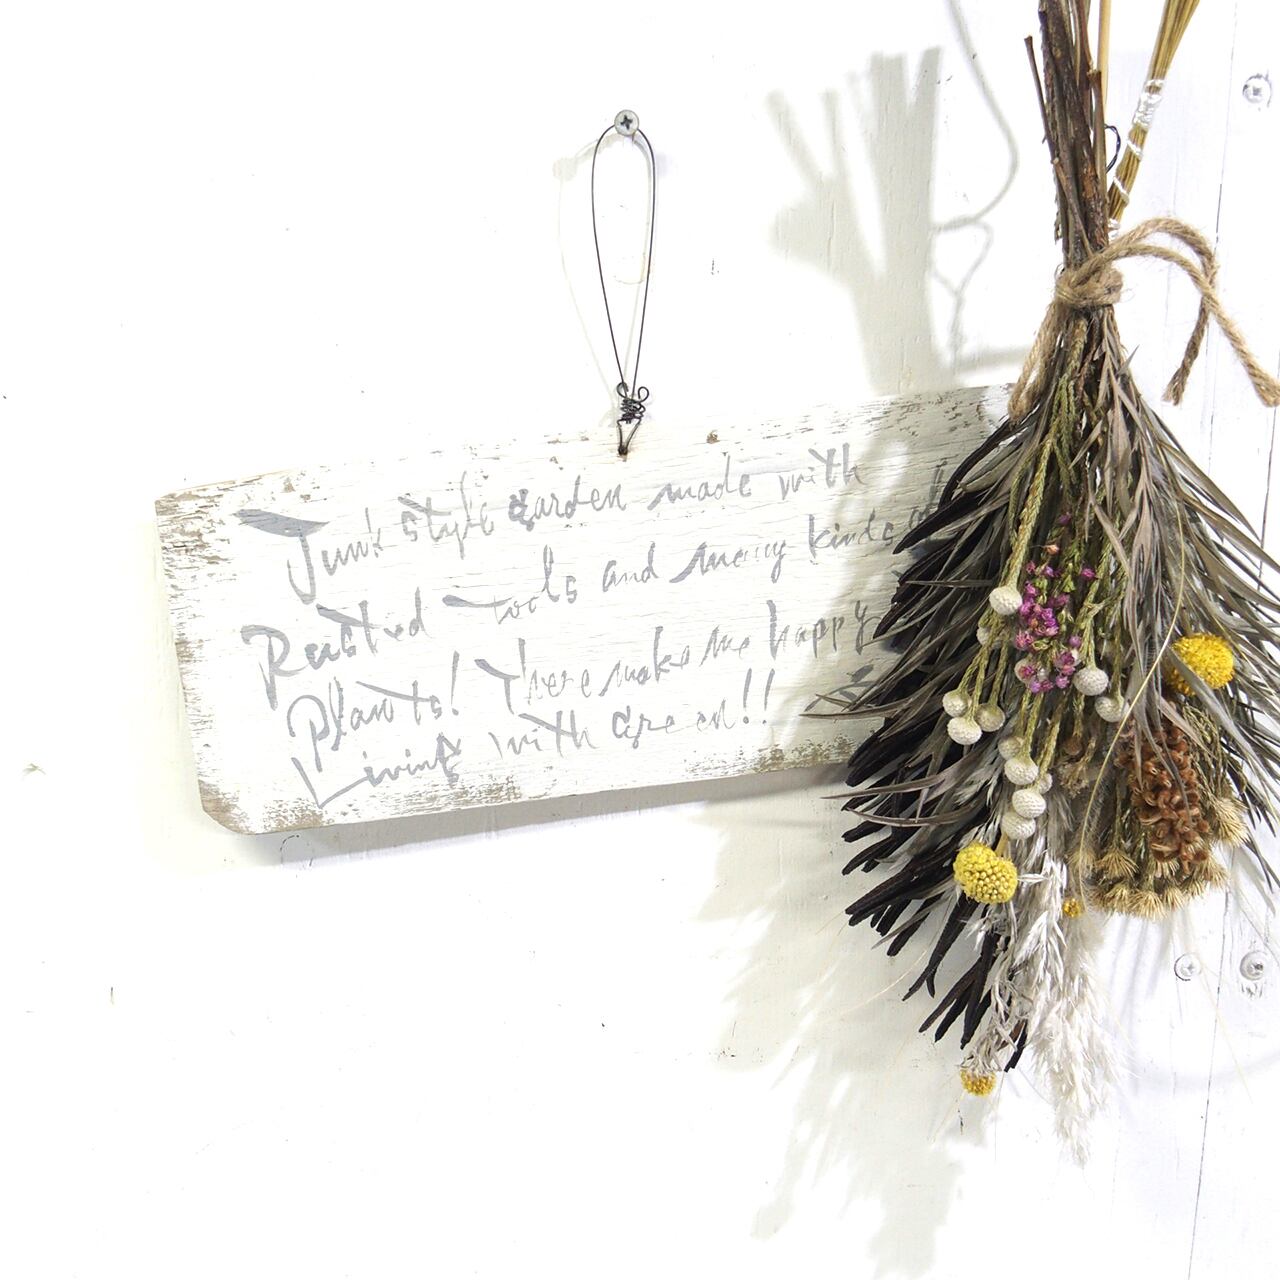 Junk style Garden made with
Rusted tools and many kinds of
Plants! There make me happy
Living with Green!!